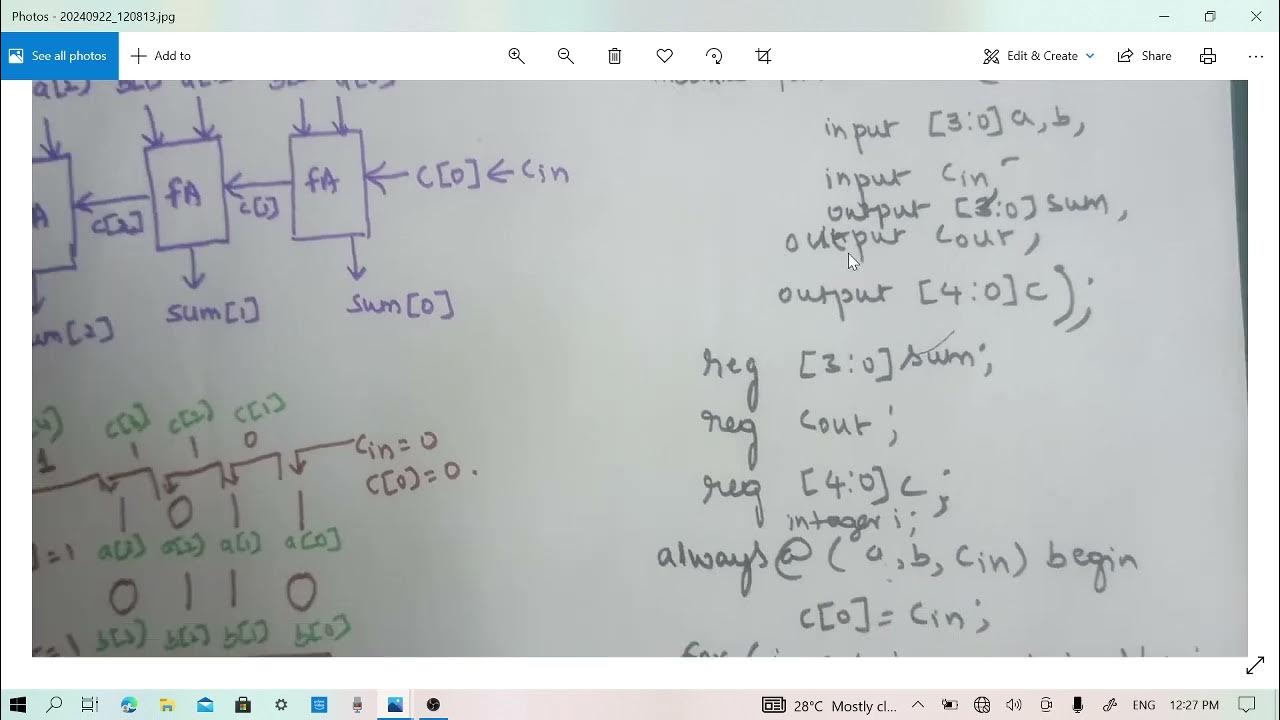 Photos - 20240922_120813.jpg
See all photos
Add to
Edit & Create
Share
a[2]
fA
fA
A
c[2]
c[1]
c[0] ← Cin
sum[1]
sum[0]
um[2]
c[3] c[2] c[1]
1 1 1 0
Cin = 0
c[0] = 0.
1 0 1 1
=1 a[3] a[2] a[1] a[0]
0 1 1 0
=1 b[3] b[2] b[1] b[0]
input [3:0] a, b,
input Cin,
output [3:0] sum,
output Cout,
output [4:0] c);
reg [3:0] sum;
reg Cout;
reg [4:0] c;
integer i;
always @ (a, b, Cin) begin
c[0] = Cin;
28°C Mostly cl...
ENG
12:27 PM